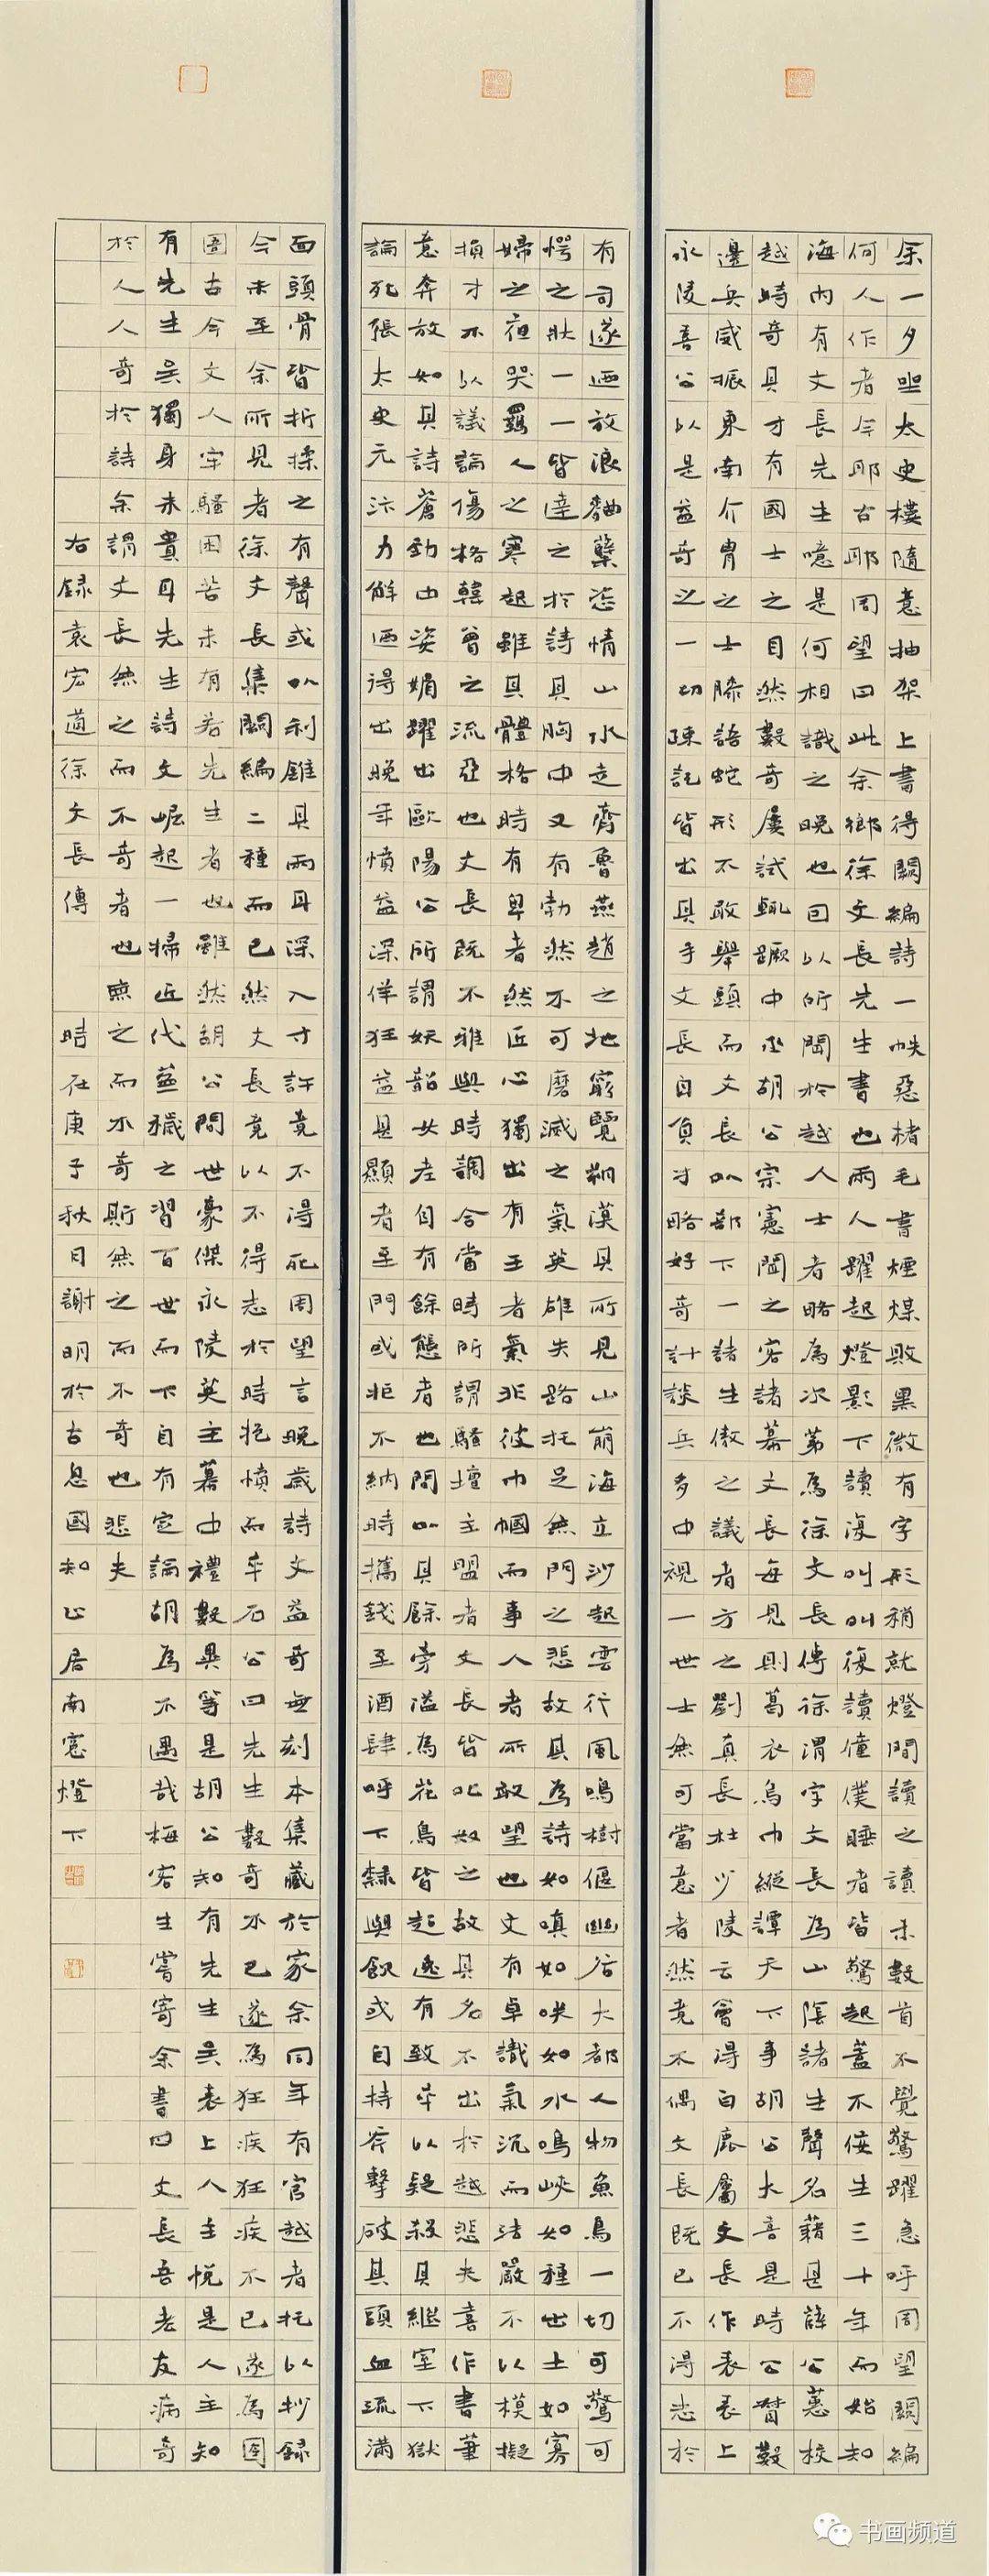 余一夕坐太史樓隨意抽架上書得闕編詩一帙惡楮毛書煙煤敗黑微有字形稍就燈間讀之讀未數首不覺驚躍急呼周望闕編
何人作者今耶古耶周望曰此余鄉徐文長先生書也兩人躍起燈影下讀復叫叫復讀僮僕睡者皆驚起蓋不佞生三十年而始知
海內有文長先生噫是何相識之晚也因以所聞於越人士者略為次第為徐文長傳徐渭字文長為山陰諸生聲名藉甚薛公蕙校
越時奇其才有國士之目然數奇屢試輒蹶中丞胡公宗憲聞之客諸幕文長每見則葛衣烏巾縱譚天下事胡公大喜是時公督數
邊兵威振東南介胄之士膝語蛇形不敢舉頭而文長以部下一諸生傲之議者方之劉真長杜少陵云會得白鹿屬文長作表表上
永陵喜公以是益奇之一切疎記皆出其手文長自負才略好奇計談兵多中視一世士無可當意者然竟不偶文長既已不得志於
有司遂迺放浪麯糵恣情山水走齊魯燕趙之地窮覽朔漠其所見山崩海立沙起雲行風鳴樹偃幽谷大都人物魚鳥一切可驚可
愕之狀一一皆達之於詩其胸中又有勃然不可磨滅之氣英雄失路托足無門之悲故其為詩如嗔如咲如水鳴峽如種出土如寡
婦之夜哭羈人之寒起雖其體格時有卑者然匠心獨出有王者氣非彼巾幗而事人者所敢望也文有卓識氣沉而法嚴不以模擬
損才不以議論傷格韓曾之流亞也文長既不雅與時調合當時所謂騷壇主盟者文長皆叱奴之故其名不出於越悲夫喜作書筆
意奔放如其詩蒼勁中姿媚躍出歐陽公所謂妖韶女老自有餘態者也間以其餘旁溢為花鳥皆超逸有致卒以疑殺其繼室下獄
論死張太史元汴力解迺得出晚年憤益深佯狂益甚顯者至門或拒不納時攜錢至酒肆呼下隸與飲或自持斧擊破其頭血流滿
面頭骨皆折揉之有聲或以利錐其兩耳深入寸許竟不得死周望言晚歲詩文益奇無刻本集藏於家余同年有官越者托以抄錄
今未至余所見者徐文長集闕編二種而已然文長竟以不得志於時抱憤而卒石公曰先生數奇不已遂為狂疾狂疾不已遂為囹
圄古今文人牢騷困苦未有若先生者也雖然胡公間世豪傑永陵英主幕中禮數異等是胡公知有先生矣表上人主悅是人主知
有先生矣獨身未貴耳先生詩文崛起一掃近代蕪穢之習百世而下自有定論胡為不遇哉梅客生嘗寄余書曰文長吾老友病奇
於人人奇於詩余謂文長無之而不奇者也無之而不奇斯無之而不奇也悲夫
右錄袁宏道徐文長傳 時在庚子秋月謝明於古息國知止居南窗燈下
书画频道